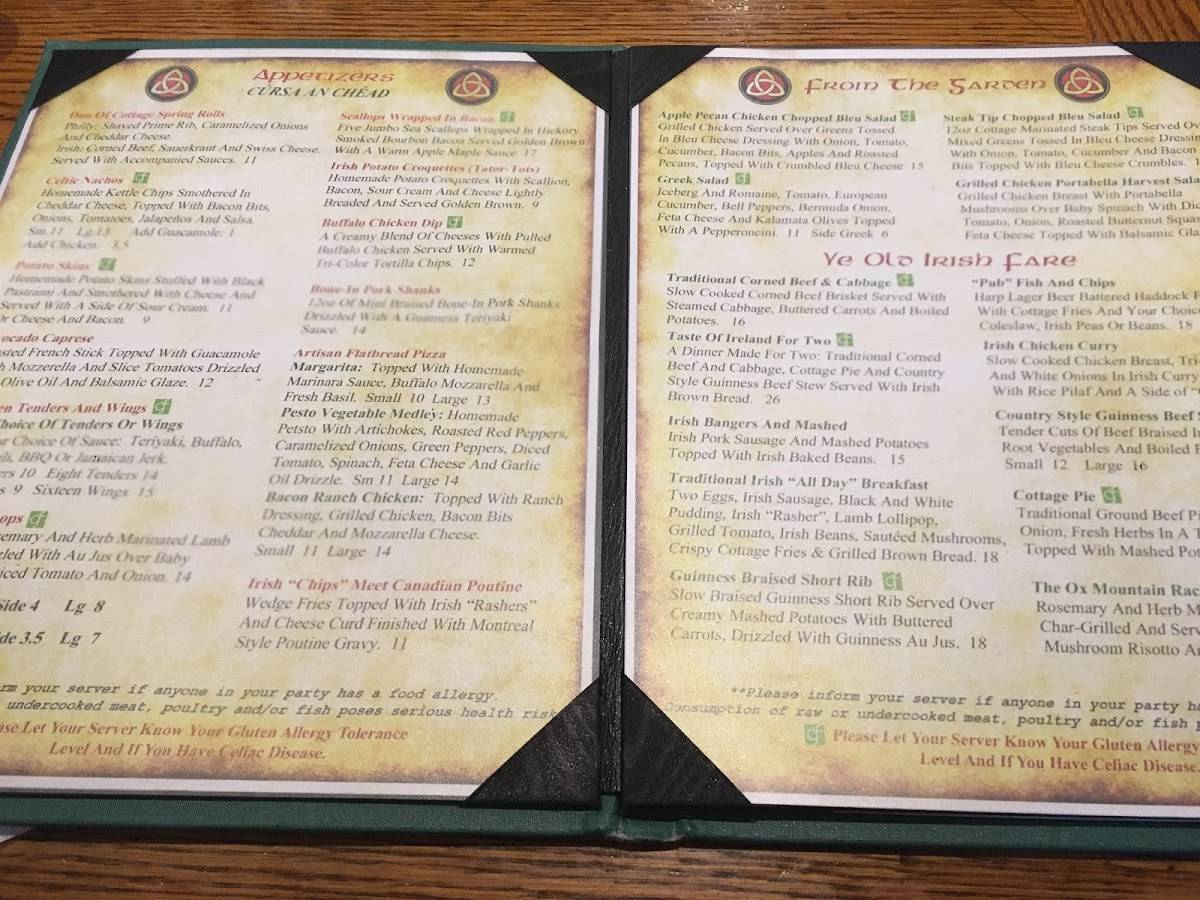 Appetizers
CÚRSA AN CHÉAD
Duo Of Cottage Spring Rolls
Philly: Shaved Prime Rib, Caramelized Onions
And Cheddar Cheese.
Irish: Corned Beef, Sauerkraut And Swiss Cheese.
Served With Accompanied Sauces. 11
Celtic Nachos
Homemade Kettle Chips Smothered In
Cheddar Cheese, Topped With Bacon Bits,
Onions, Tomatoes, Jalapeños And Salsa.
Sm.11 Lg.13 Add Guacamole: 1
Add Chicken: 3.5
Potato Skins
Homemade Potato Skins Stuffed With Black
Pastrami And Smothered With Cheese And
Served With A Side Of Sour Cream. 11
Or Cheese And Bacon. 9
Caprese
French Stick Topped With Guacamole
Mozzerella And Slice Tomatoes Drizzled
Olive Oil And Balsamic Glaze. 12
Tenders And Wings
Choice Of Tenders Or Wings
Choice Of Sauce: Teriyaki, Buffalo,
BBQ Or Jamaican Jerk.
10 Eight Tenders 14
9 Sixteen Wings 15
And Herb Marinated Lamb
With Au Jus Over Baby
Tomato And Onion. 14
Side 4 Lg 8
3.5 Lg 7
Scallops Wrapped In Bacon
Five Jumbo Sea Scallops Wrapped In Hickory
Smoked Bourbon Bacon Served Golden Brown
With A Warm Apple Maple Sauce 17
Irish Potato Croquettes (Tator-Tots)
Homemade Potato Croquettes With Scallion,
Bacon, Sour Cream And Cheese Lightly
Breaded And Served Golden Brown. 9
Buffalo Chicken Dip
A Creamy Blend Of Cheeses With Pulled
Buffalo Chicken Served With Warmed
Tri-Color Tortilla Chips. 12
Bone-In Pork Shanks
12oz Of Mini Braised Bone-In Pork Shanks
Drizzled With A Guinness Teriyaki
Sauce. 14
Artisan Flatbread Pizza
Margarita: Topped With Homemade
Marinara Sauce, Buffalo Mozzarella And
Fresh Basil. Small 10 Large 13
Pesto Vegetable Medley: Homemade
Petsto With Artichokes, Roasted Red Peppers,
Caramelized Onions, Green Peppers, Diced
Tomato, Spinach, Feta Cheese And Garlic
Oil Drizzle. Sm 11 Large 14
Bacon Ranch Chicken: Topped With Ranch
Dressing, Grilled Chicken, Bacon Bits
Cheddar And Mozzarella Cheese.
Small 11 Large 14
Irish “Chips” Meet Canadian Poutine
Wedge Fries Topped With Irish “Rashers”
And Cheese Curd Finished With Montreal
Style Poutine Gravy. 11
your server if anyone in your party has a food allergy.
undercooked meat, poultry and/or fish poses serious health risk
Let Your Server Know Your Gluten Allergy Tolerance
Level And If You Have Celiac Disease.
From The Garden
Apple Pecan Chicken Chopped Bleu Salad
Grilled Chicken Served Over Greens Tossed
In Bleu Cheese Dressing With Onion, Tomato,
Cucumber, Bacon Bits, Apples And Roasted
Pecans, Topped With Crumbled Bleu Cheese 15
Greek Salad
Iceberg And Romaine, Tomato, European
Cucumber, Bell Peppers, Bermuda Onion,
Feta Cheese And Kalamata Olives Topped
With A Pepperoncini. 11 Side Greek 6
Steak Tip Chopped Bleu Salad
12oz Cottage Marinated Steak Tips Served
Mixed Greens Tossed In Bleu Cheese
With Onion, Tomato, Cucumber And Bacon
Bits Topped With Bleu Cheese Crumbles.
Grilled Chicken Portabella Harvest
Grilled Chicken Breast With Portabella
Mushrooms Over Baby Spinach With
Tomato, Onion, Roasted Butternut
Feta Cheese Topped With Balsamic
Ye Old Irish Fare
Traditional Corned Beef & Cabbage
Slow Cooked Corned Beef Brisket Served With
Steamed Cabbage, Buttered Carrots And Boiled
Potatoes. 16
Taste Of Ireland For Two
A Dinner Made For Two: Traditional Corned
Beef And Cabbage, Cottage Pie And Country
Style Guinness Beef Stew Served With Irish
Brown Bread. 26
Irish Bangers And Mashed
Irish Pork Sausage And Mashed Potatoes
Topped With Irish Baked Beans. 15
Traditional Irish “All Day” Breakfast
Two Eggs, Irish Sausage, Black And White
Pudding, Irish “Rasher”, Lamb Lollipop,
Grilled Tomato, Irish Beans, Sautéed Mushrooms,
Crispy Cottage Fries & Grilled Brown Bread. 18
Guinness Braised Short Rib
Slow Braised Guinness Short Rib Served Over
Creamy Mashed Potatoes With Buttered
Carrots, Drizzled With Guinness Au Jus. 18
“Pub” Fish And Chips
Harp Lager Beer Battered Haddock
With Cottage Fries And Your
Coleslaw, Irish Peas Or Beans. 18
Irish Chicken Curry
Slow Cooked Chicken Breast,
And White Onions In Irish Curry
With Rice Pilaf And A Side of
Country Style Guinness Beef
Tender Cuts Of Beef Braised
Root Vegetables And Boiled
Small 12 Large 16
Cottage Pie
Traditional Ground Beef
Onion, Fresh Herbs In A
Topped With Mashed
The Ox Mountain
Rosemary And Herb
Char-Grilled And
Mushroom Risotto
**Please inform your server if anyone in your party
Consumption of raw or undercooked meat, poultry and/or fish
Please Let Your Server Know Your Gluten Allergy
Level And If You Have Celiac Disease.